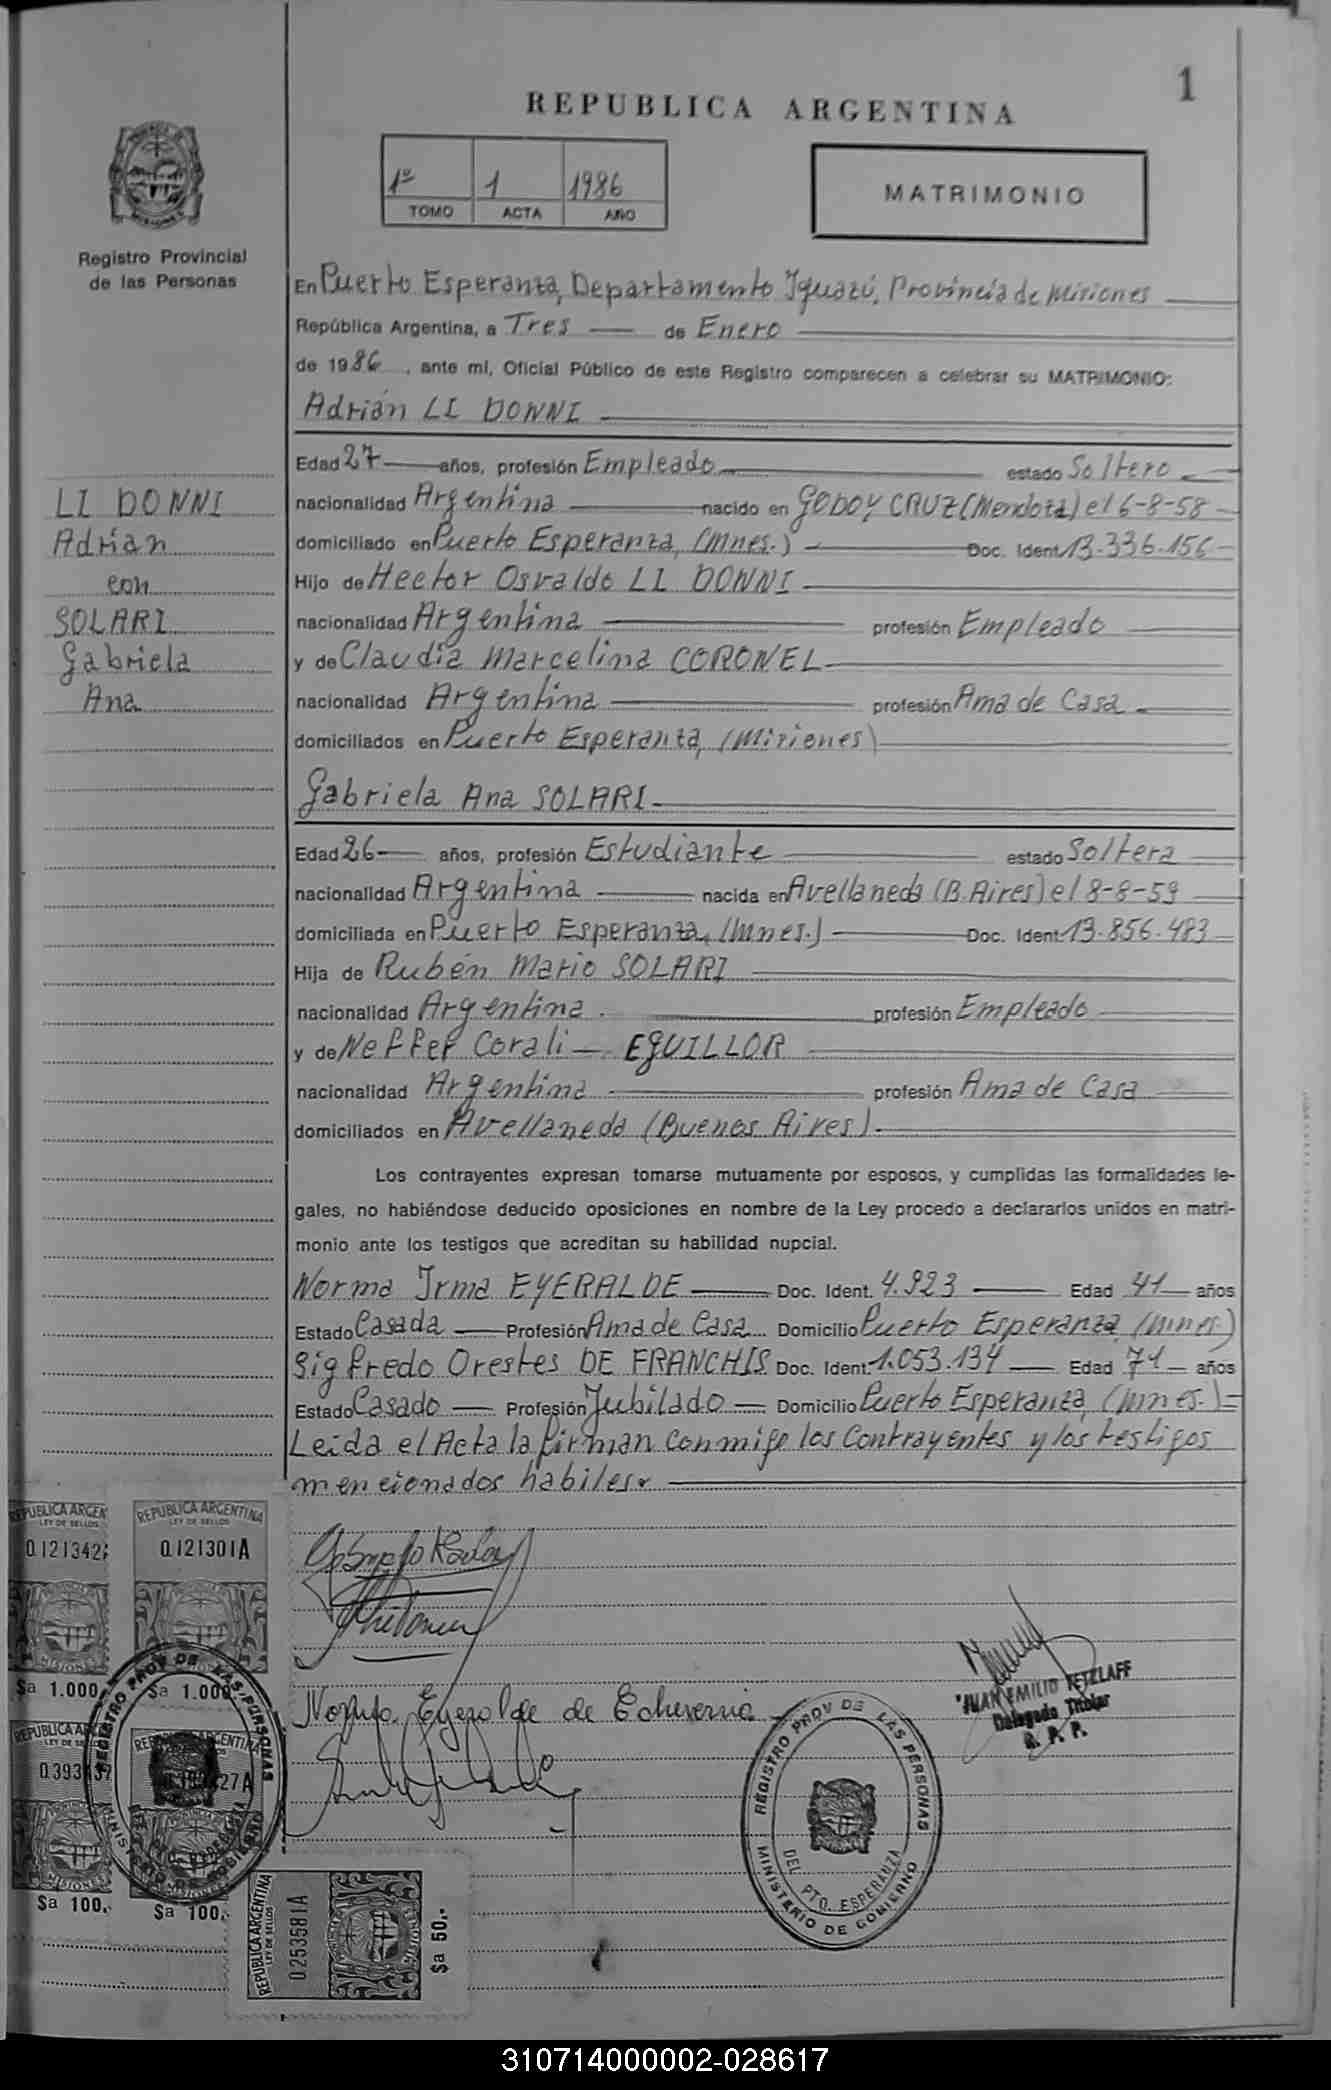 1
REPUBLICA ARGENTINA
1º 1 1986
TOMO ACTA AÑO
MATRIMONIO
Registro Provincial
de las Personas
LI DONNI
Adrián
con
SOLARI
Gabriela
Ana
En Puerto Esperanza, Departamento Iguazú, Provincia de Misiones
República Argentina, a Tres de Enero
de 1986, ante mí, Oficial Público de este Registro comparecen a celebrar su MATRIMONIO:
Adrián LI DONNI
Edad 27 años, profesión Empleado estado Soltero
nacionalidad Argentina nacido en GODOY CRUZ (Mendoza) el 6-8-58
domiciliado en Puerto Esperanza, (Mnes.) Doc. Ident. 13.336.156
Hijo de Hector Osvaldo LI DONNI
nacionalidad Argentina profesión Empleado
y de Claudia Marcelina CORONEL
nacionalidad Argentina profesión Ama de Casa
domiciliados en Puerto Esperanza, (Misiones)
Gabriela Ana SOLARI
Edad 26 años, profesión Estudiante estado Soltera
nacionalidad Argentina nacida en Avellaneda (B. Aires) el 8-8-59
domiciliada en Puerto Esperanza, (Mnes.) Doc. Ident. 13.856.483
Hija de Rubén Mario SOLARI
nacionalidad Argentina profesión Empleado
y de Neffer Corali EGUILLOR
nacionalidad Argentina profesión Ama de Casa
domiciliados en Avellaneda (Buenos Aires).
Los contrayentes expresan tomarse mutuamente por esposos, y cumplidas las formalidades le-
gales, no habiéndose deducido oposiciones en nombre de la Ley procedo a declararlos unidos en matri-
monio ante los testigos que acreditan su habilidad nupcial.
Norma Irma EYERALDE Doc. Ident. 4.923 Edad 41 años
Estado Casada Profesión Ama de Casa Domicilio Puerto Esperanza (Mnes.)
Sigfredo Orestes DE FRANCHIS Doc. Ident. 1.053.134 Edad 71 años
Estado Casado Profesión Jubilado Domicilio Puerto Esperanza, (Mnes.)
Leida el Acta la firman conmigo los Contrayentes y los testigos
mencionados habiles.
Norma Eyeralde de Echeverria
JUAN EMILIO TETZLAFF
Delegado Titular
R. P. P.
REGISTRO PROV DE LAS PERSONAS
DEL PTO. ESPERANZA
MINISTERIO DE GOBIERNO
REPUBLICA ARGEN
LEY DE SELLOS
0.121342
MISIONES
$a 1.000
REPUBLICA ARGENTINA
LEY DE SELLOS
0.121301A
$a 1.000
REPUBLICA
LEY DE SELLOS
MISIONES
$a 100.-
LEY DE SELLOS
$a 100.-
REGISTRO PROV DE LAS PERSONAS
MINISTERIO DE GOBIERNO
REPUBLICA ARGENTINA
LEY DE SELLOS
0.253581A
$a 50.-
310714000002-028617